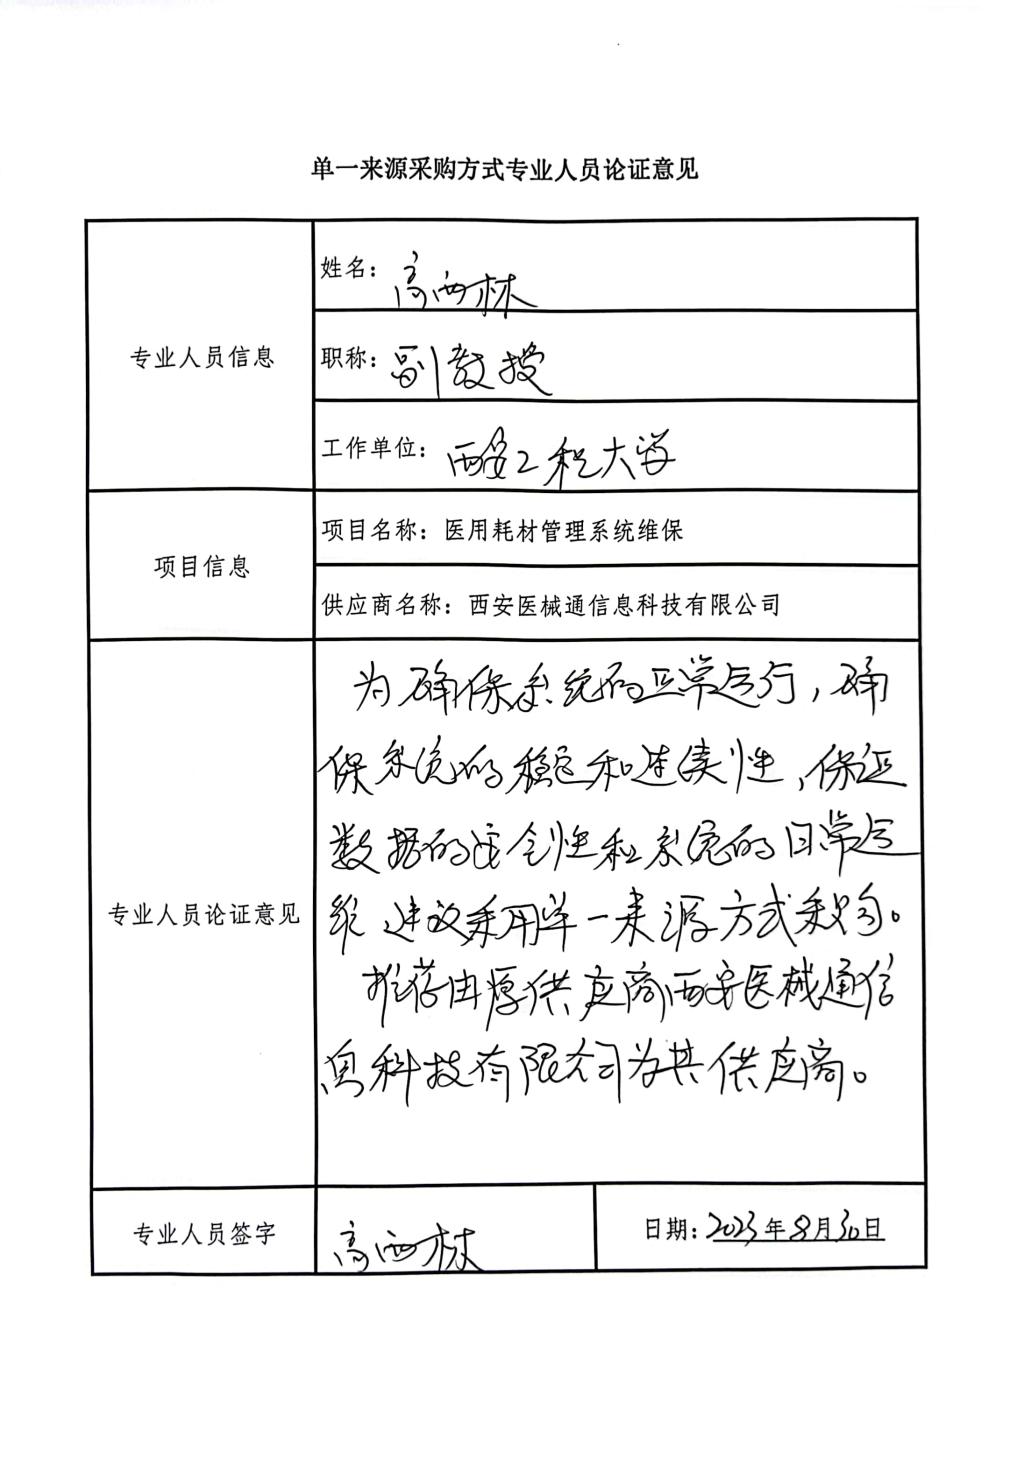 单一来源采购方式专业人员论证意见
专业人员信息
姓名：高西林
职称：副教授
工作单位：西安工程大学
项目信息
项目名称：医用耗材管理系统维保
供应商名称：西安医械通信息科技有限公司
专业人员论证意见
为确保系统的正常运行，确
保系统的稳定和连续性，保证
数据的安全性和系统的日常运
维 建议采用单一来源方式采购。
推荐由原供应商西安医械通信
息科技有限公司为其供应商。
专业人员签字
高西林
日期：2023年8月30日